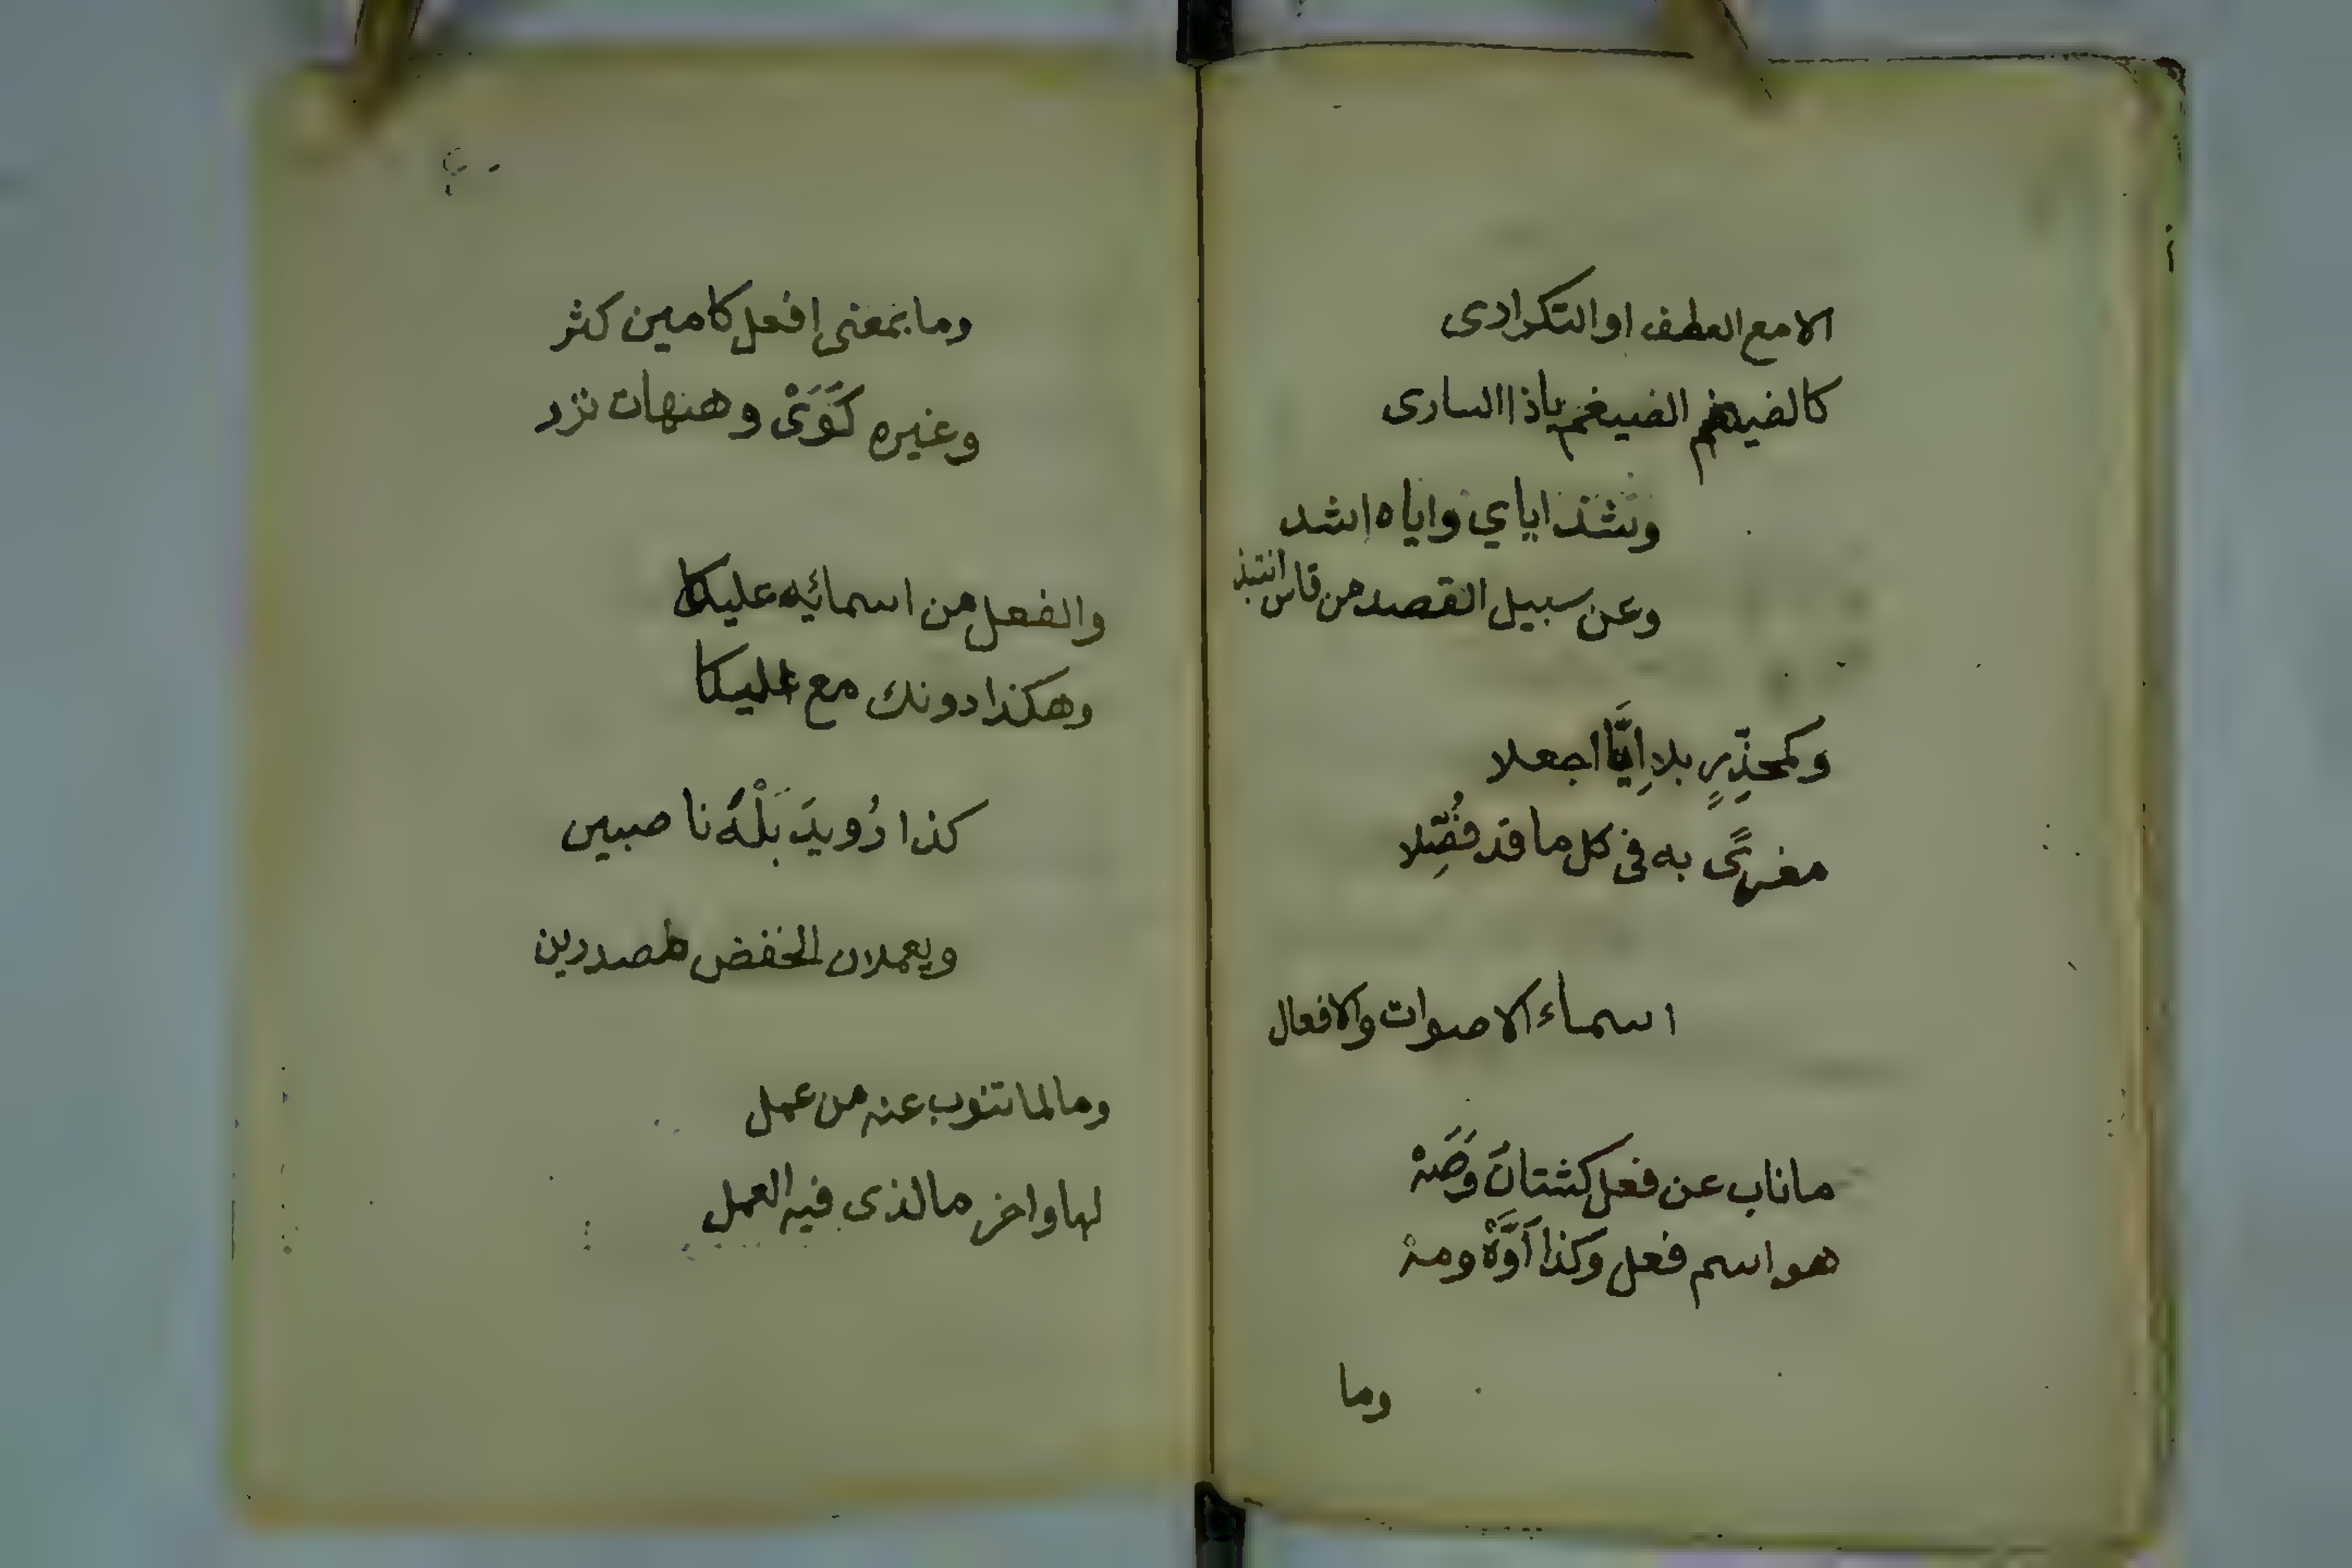 الامع العطف او التكرادى
كالضيغم الضيغم ياذا السارى
وشذ اياي واياه اشد
وعن سبيل القصد من قاس انتبذ
وكمحذّرٍ بلا اِيَّا اجعلا
مغرىً به فى كل ما قد فُصِّلا
اسماء الاصوات والافعال
ما ناب عن فعل كشتانَ وَصَهْ
هو اسم فعل وكذا اَوَّهْ ومهْ
وما
وما بمعنى افعل كامين كثر
وغيره كَوَىْ وهيهات نزر
والفعل من اسمائه عليكا
وهكذا دونك مع اليكا
كذا رُويدَ بَلْهَ ناصبين
ويعملان الخفض مصدرين
وما لما تنوب عنه من عمل
لها واخر ما لذى فيه العمل